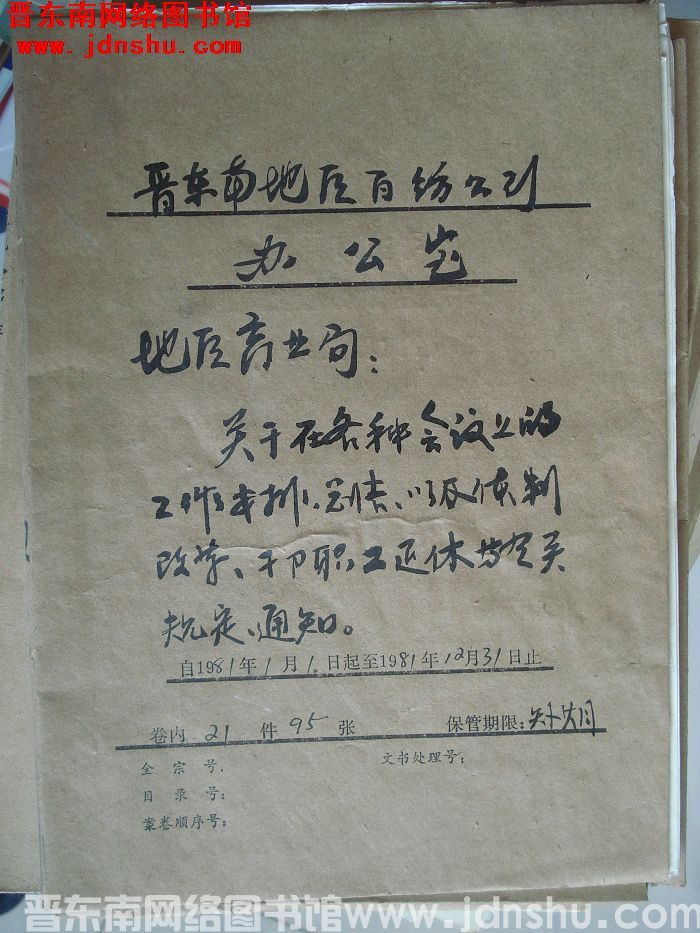 晋东南网络图书馆
www.jdnshu.com
晋东南地区百纺公司
办公室
地区商业局：
关于在各种会议上的
工作安排、总结、以及体制
改革、干部职工退休等有关
规定、通知。
自1981年1月1日起至1981年12月31日止
卷内 21 件 95 张 保管期限：短期
全宗号： 文书处理号：
目录号：
案卷顺序号：
晋东南网络图书馆www.jdnshu.com